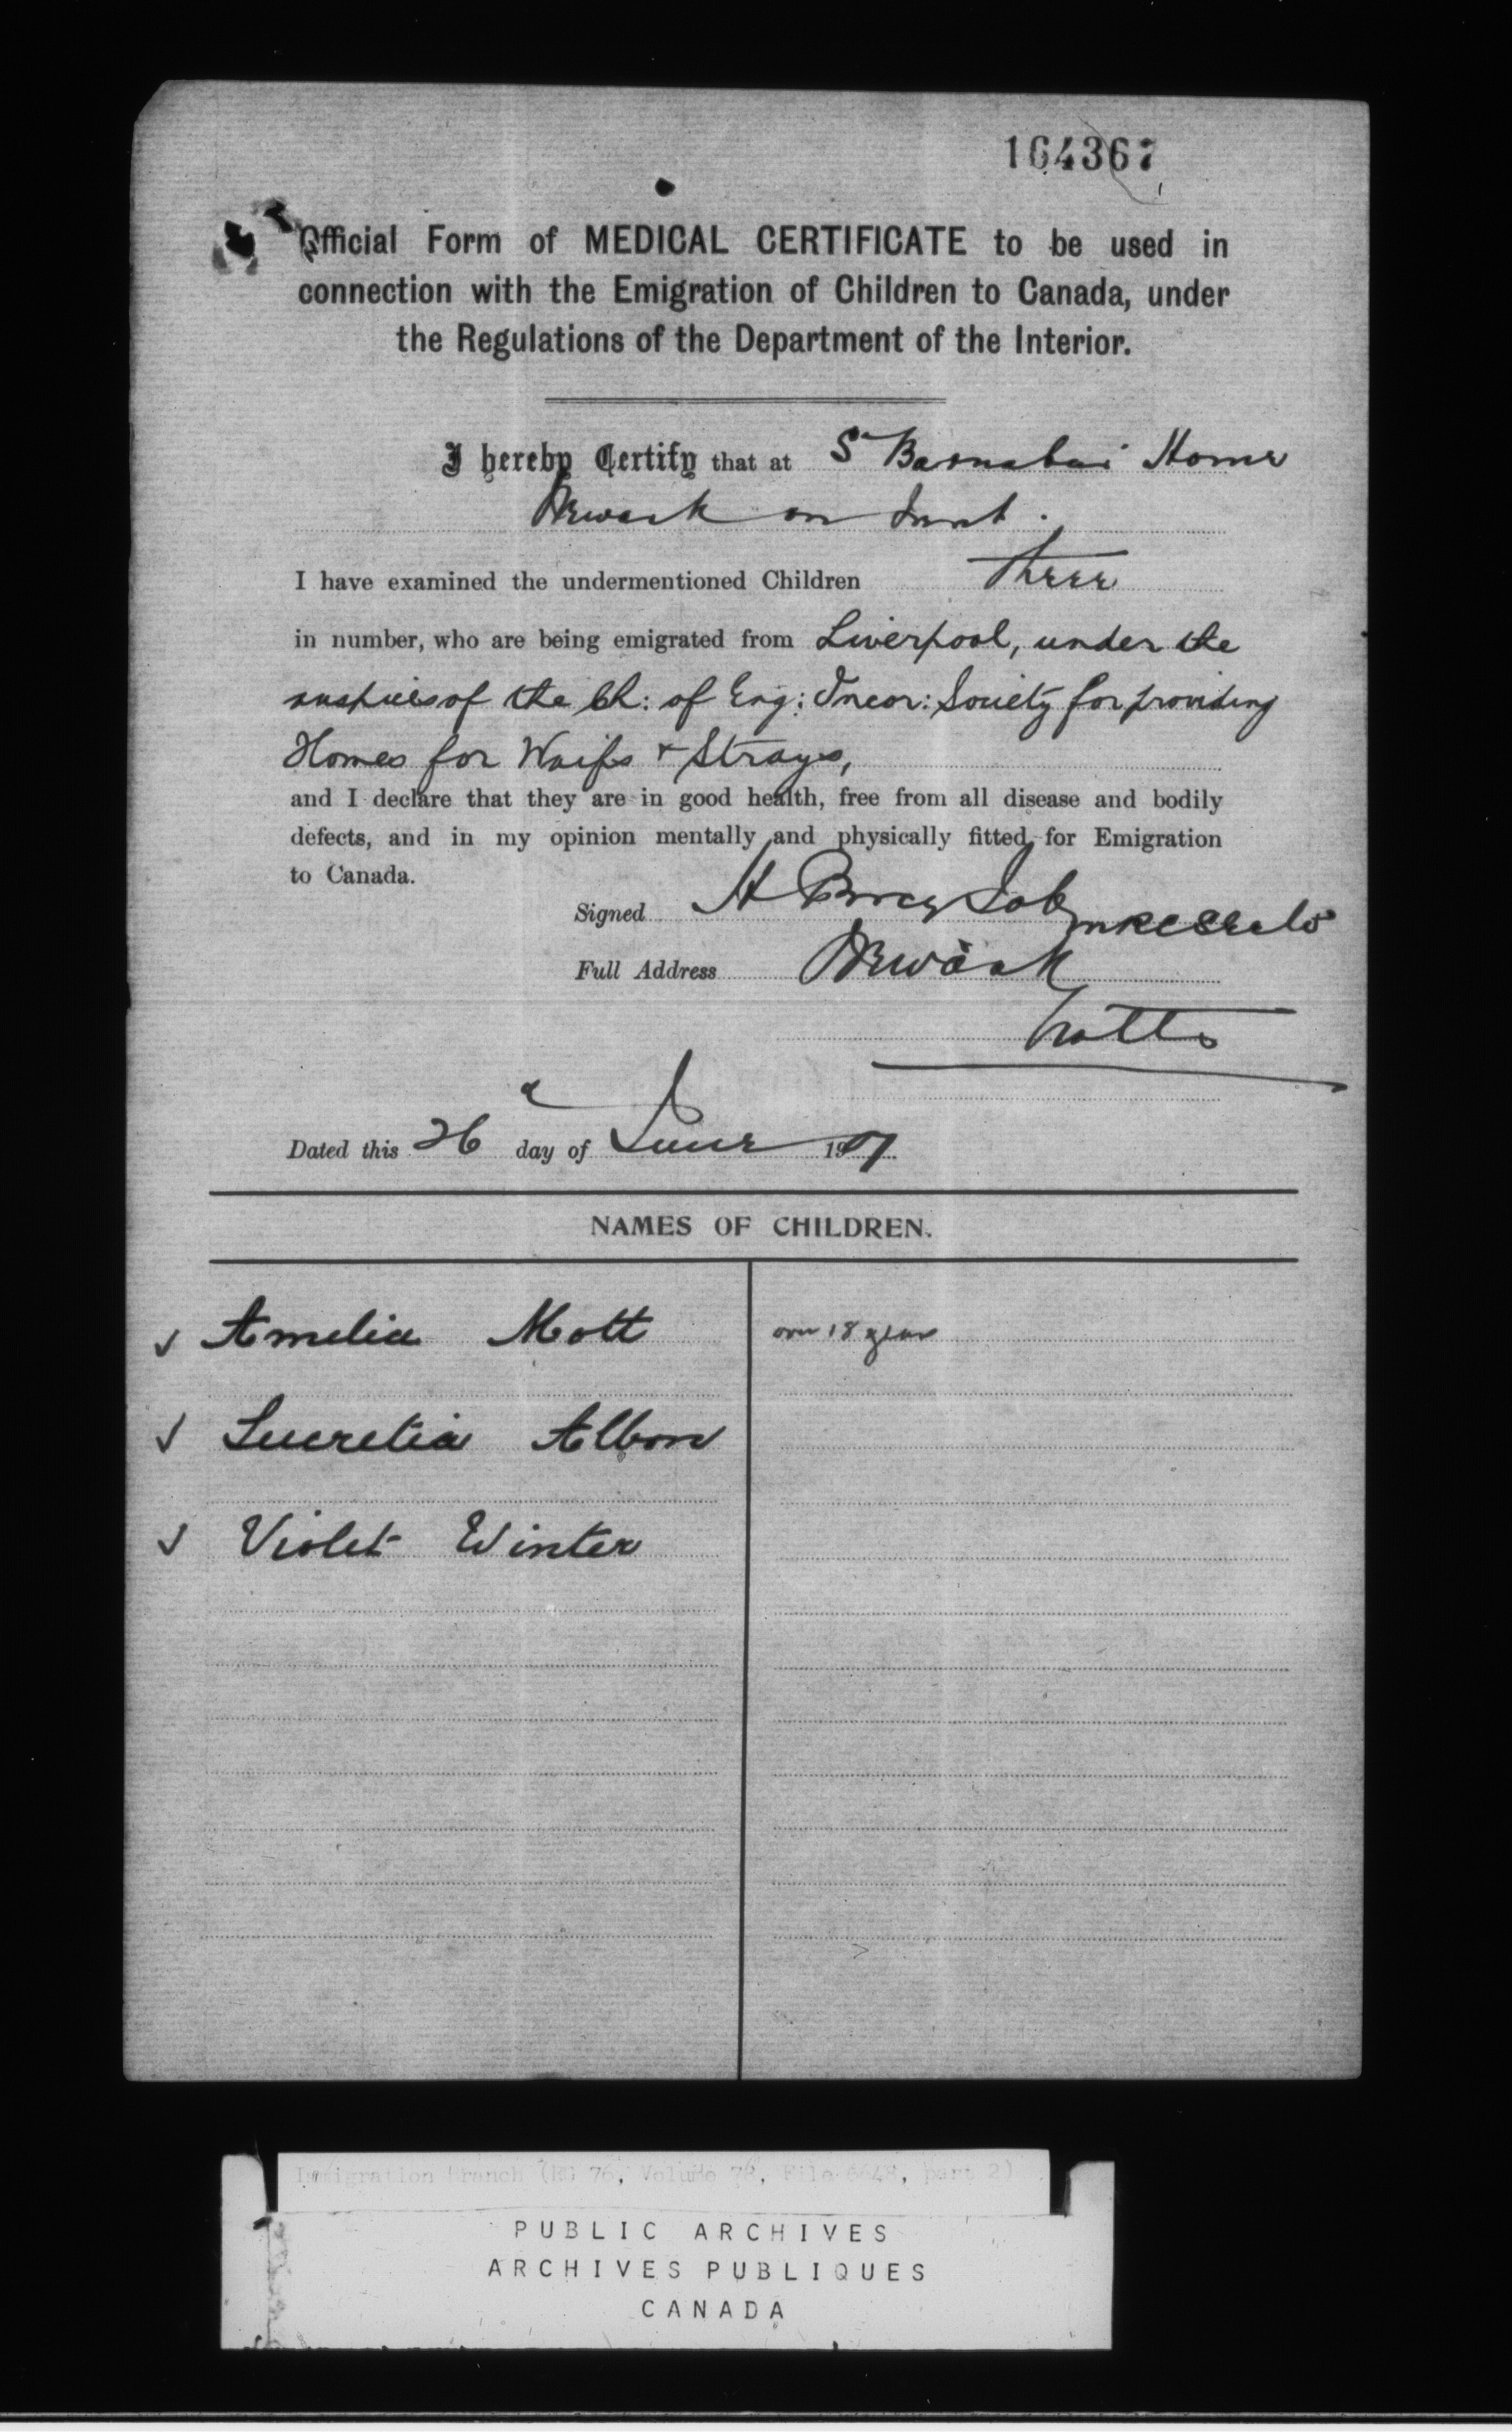 164367
Official Form of MEDICAL CERTIFICATE to be used in
connection with the Emigration of Children to Canada, under
the Regulations of the Department of the Interior.
I hereby Certify that at St Barnabas Home
Newark on Trent.
I have examined the undermentioned Children three
in number, who are being emigrated from Liverpool, under the
auspices of the Ch: of Eng: Incor: Society for providing
Homes for Waifs & Strays,
and I declare that they are in good health, free from all disease and bodily
defects, and in my opinion mentally and physically fitted for Emigration
to Canada.
Signed H Percy
Full Address Newark
Notts
Dated this 26 day of June 1907
NAMES OF CHILDREN.
Amelia Mott over 18 years
Lucretia Albon
Violet Winter
Immigration Branch (RG 76, Volume 78, File 6648, part 2)
PUBLIC ARCHIVES
ARCHIVES PUBLIQUES
CANADA